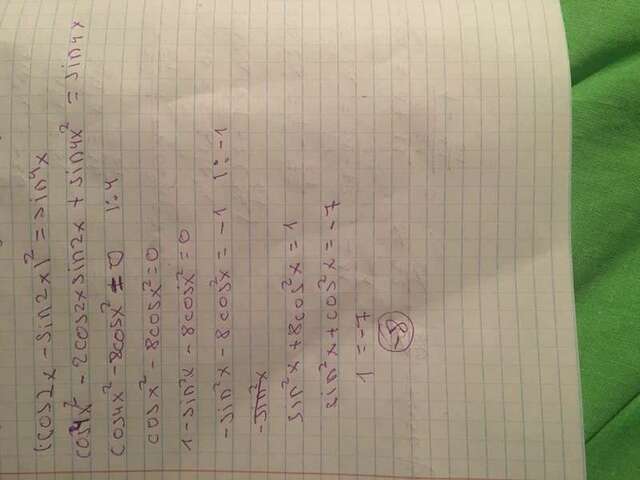 (cos2x - sin2x)² = sin4x
cos4x² - 2cos2xsin2x + sin4x² = sin4x
cos4x² - 8cosx² = 0 |:4
cosx² - 8cosx² = 0
1 - sin²x - 8cosx² = 0
-sin²x - 8cos²x = -1 |: -1
-sin²x
sin²x + 8cos²x = 1
sin²x + cos²x = -7
1 = -7
-8